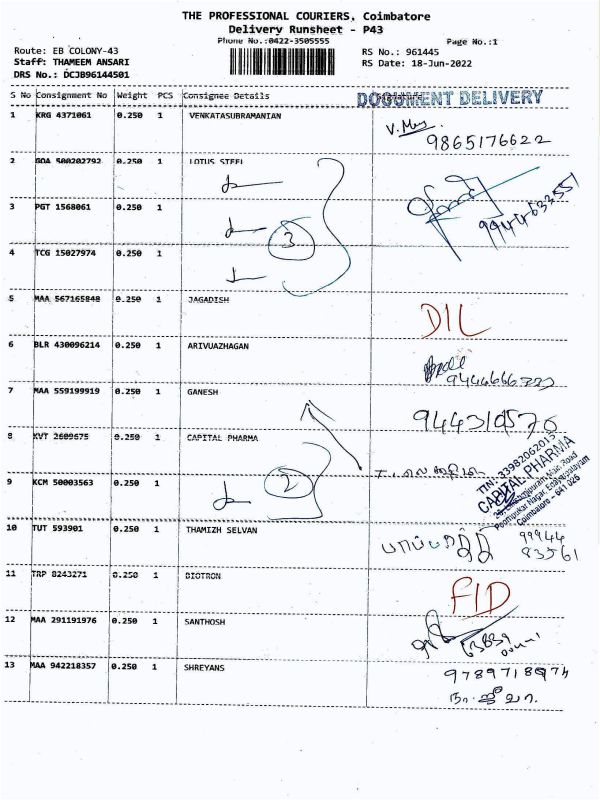 THE PROFESSIONAL COURIERS, Coimbatore
Delivery Runsheet - P43
Phone No.:0422-3505555
Page No.:1
Route: EB COLONY-43
RS No.: 961445
Staff: THAMEEM ANSARI
RS Date: 18-Jun-2022
DRS No.: DCJB96144501
S No Consignment No Weight PCS Consignee Details
DOCUMENT DELIVERY
1 KRG 4371061 0.250 1 VENKATASUBRAMANIAN
9865176622
2 GOA 500202792 0.250 1 LOTUS STEEL
3 PGT 1568061 0.250 1
3
4 TCG 15027974 0.250 1
5 MAA 567165848 0.250 1 JAGADISH
DIL
6 BLR 430096214 0.250 1 ARIVUAZHAGAN
7 MAA 559199919 0.250 1 GANESH
8 KVT 2609675 0.250 1 CAPITAL PHARMA
TIN: 33982062015
CAPITAL PHARMA
Coimbatore - 641 026
9 KCM 50003563 0.250 1
2
10 TUT 593901 0.250 1 THAMIZH SELVAN
99944
83561
11 TRP 8243271 0.250 1 BIOTRON
FID
12 MAA 291191976 0.250 1 SANTHOSH
13 MAA 942218357 0.250 1 SHREYANS